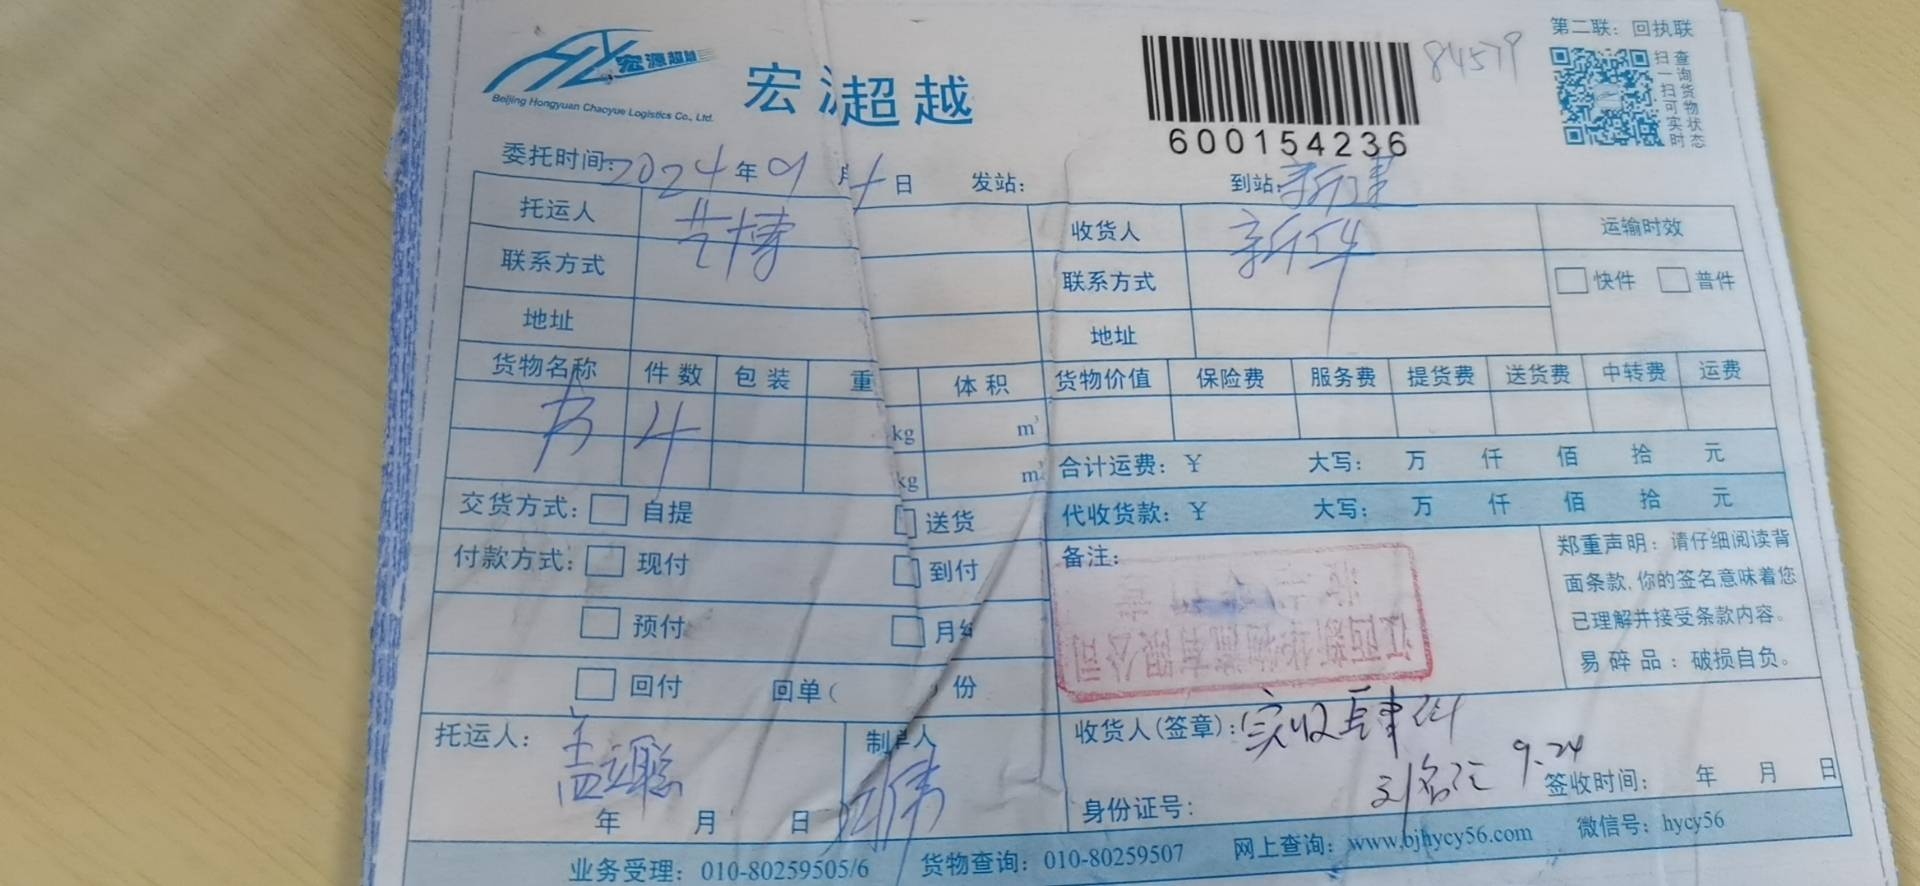 宏源超越
Beijing Hongyuan Chaoyue Logistics Co., Ltd.
宏源超越
600154236
84579
第二联：回执联
扫一扫可实时
查询货物状态
委托时间：2024年9月 日
发站：
到站：新建
托运人 艺博
收货人 新华
运输时效
联系方式
联系方式
快件 普件
地址
地址
货物名称 件数 包装 重 体积 货物价值 保险费 服务费 提货费 送货费 中转费 运费
书 4 kg m³
kg m³
合计运费：￥ 大写： 万 仟 佰 拾 元
交货方式： 自提 送货
代收货款：￥ 大写： 万 仟 佰 拾 元
付款方式： 现付 到付
预付 月结
回付 回单（ ）份
备注：
江西新华物流有限公司
郑重声明：请仔细阅读背
面条款,你的签名意味着您
已理解并接受条款内容。
易碎品：破损自负。
托运人：
年 月 日
制单人
收货人(签章)：实收肆件
9.24
身份证号：
签收时间： 年 月 日
业务受理：010-80259505/6 货物查询：010-80259507 网上查询：www.bjhycy56.com 微信号：hycy56